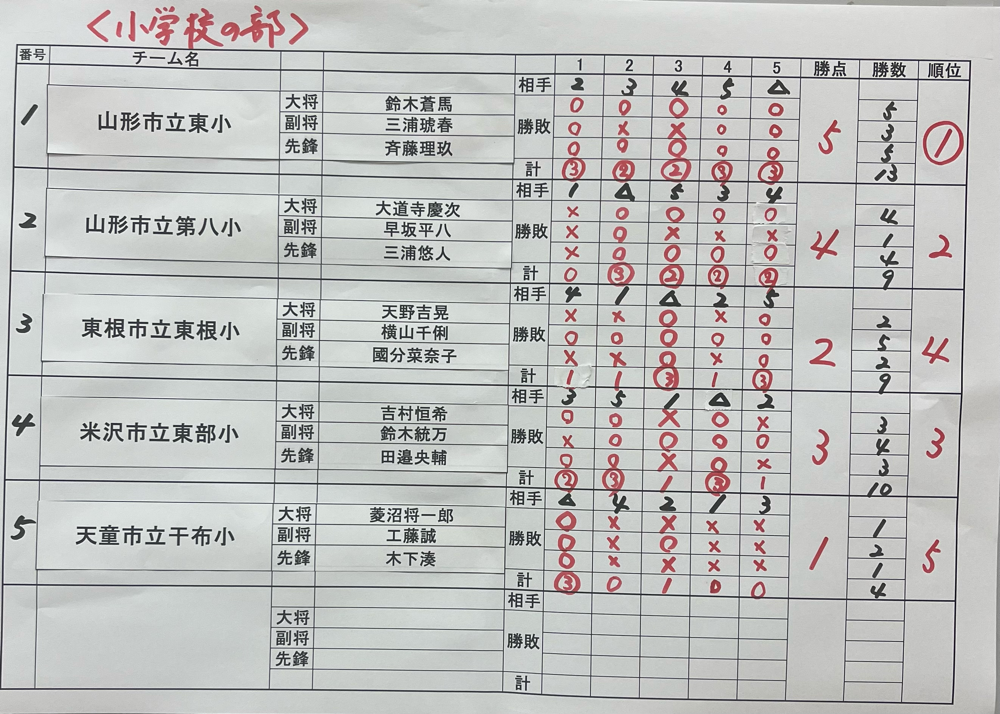 〈小学校の部〉
番号 チーム名 1 2 3 4 5 勝点 勝数 順位
1 山形市立東小 相手 2 3 4 5 △ 5 ①
大将 鈴木蒼馬 勝敗 ○ ○ ○ ○ ○ 5
副将 三浦琥春 ○ × × ○ ○ 3
先鋒 斉藤理玖 ○ ○ ○ ○ ○ 5
計 ③ ② ② ③ ③ 13
2 山形市立第八小 相手 1 △ 5 3 4 4 2
大将 大道寺慶次 勝敗 × ○ ○ ○ ○ 4
副将 早坂平八 × ○ × × × 1
先鋒 三浦悠人 × ○ ○ ○ ○ 4
計 0 ③ ② ② ② 9
3 東根市立東根小 相手 4 1 △ 2 5 2 4
大将 天野吉晃 勝敗 × × ○ × ○ 2
副将 横山千俐 ○ ○ ○ ○ ○ 5
先鋒 國分菜奈子 × × ○ × ○ 2
計 1 1 ③ 1 ③ 9
4 米沢市立東部小 相手 3 5 1 △ 2 3 3
大将 吉村恒希 勝敗 ○ ○ × ○ × 3
副将 鈴木統万 × ○ ○ ○ ○ 4
先鋒 田邉央輔 ○ ○ × ○ × 3
計 ② ③ 1 ③ 1 10
5 天童市立干布小 相手 △ 4 2 1 3 1 5
大将 菱沼将一郎 勝敗 ○ × × × × 1
副将 工藤誠 ○ × ○ × × 2
先鋒 木下湊 ○ × × × × 1
計 ③ 0 1 0 0 4
相手
大将 勝敗
副将
先鋒
計